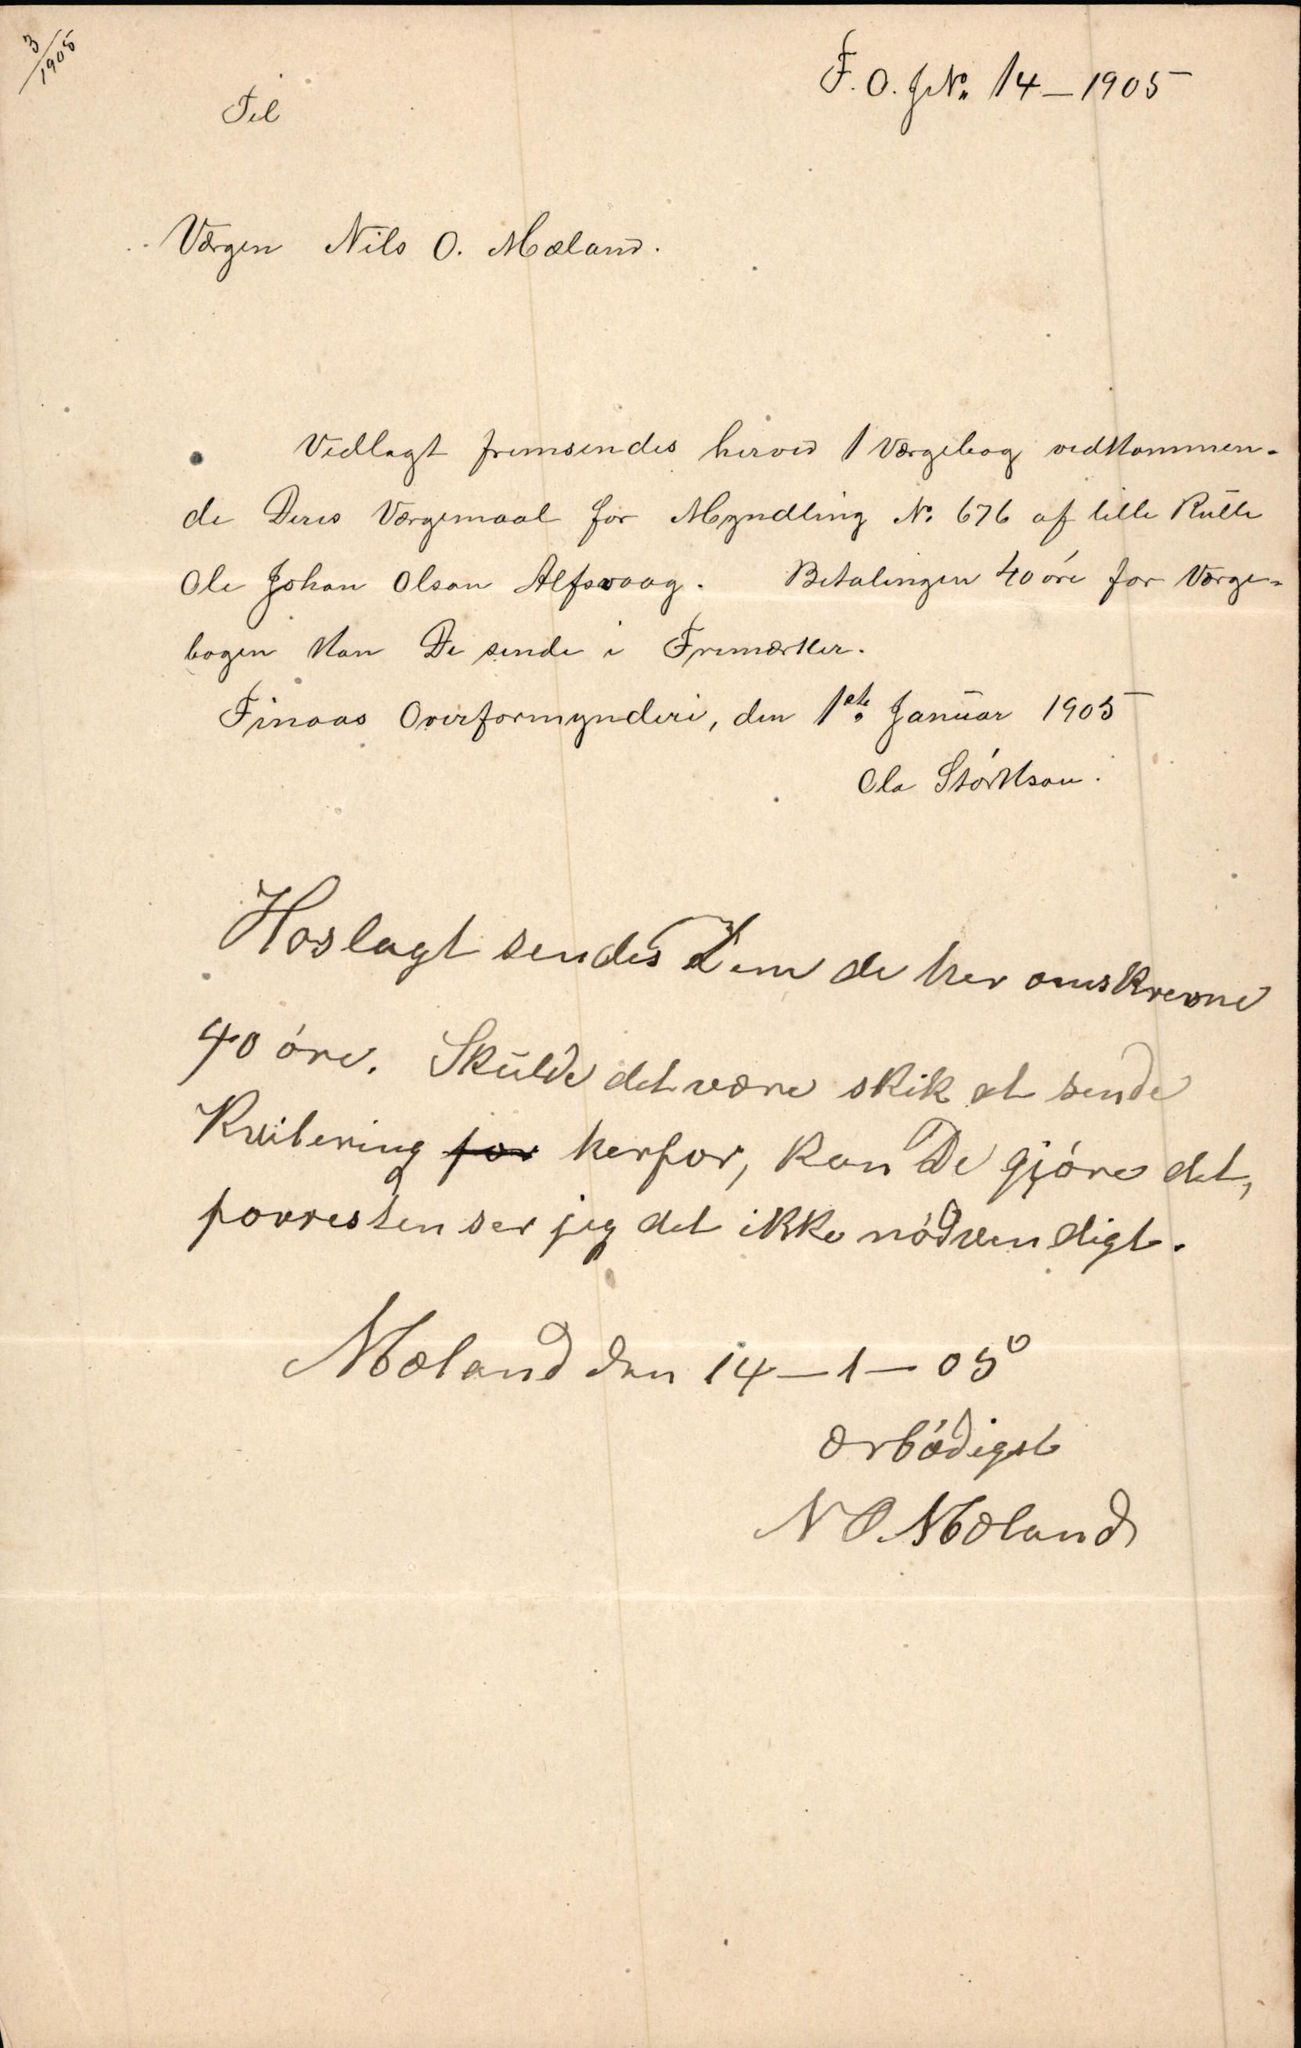 3/1905
F. O. J.No. 14 – 1905
Til
Værgen Nils O. Mæland.
Vedlagt fremsendes herved 1 Værgebog vedkommen-
de Deres Værgemaal for Myndling No. 676 af lille Rulle
Ole Johan Olson Alfsvaag. Betalingen 40 öre for Værge-
bogen kan De sende i Frimærker.
Finaas Overformynderi, den 1ste Januar 1905
Ola Störkson.
Hoslagt sendes Dem de her omskrevne
40 öre. Skulde det være skik at sende
Kvitering for herfor, kan De gjöre det,
forresten ser jeg det ikke nödvendigt.
Mæland den 14 – 1 – 05
Ærbödigst
N O. Mæland